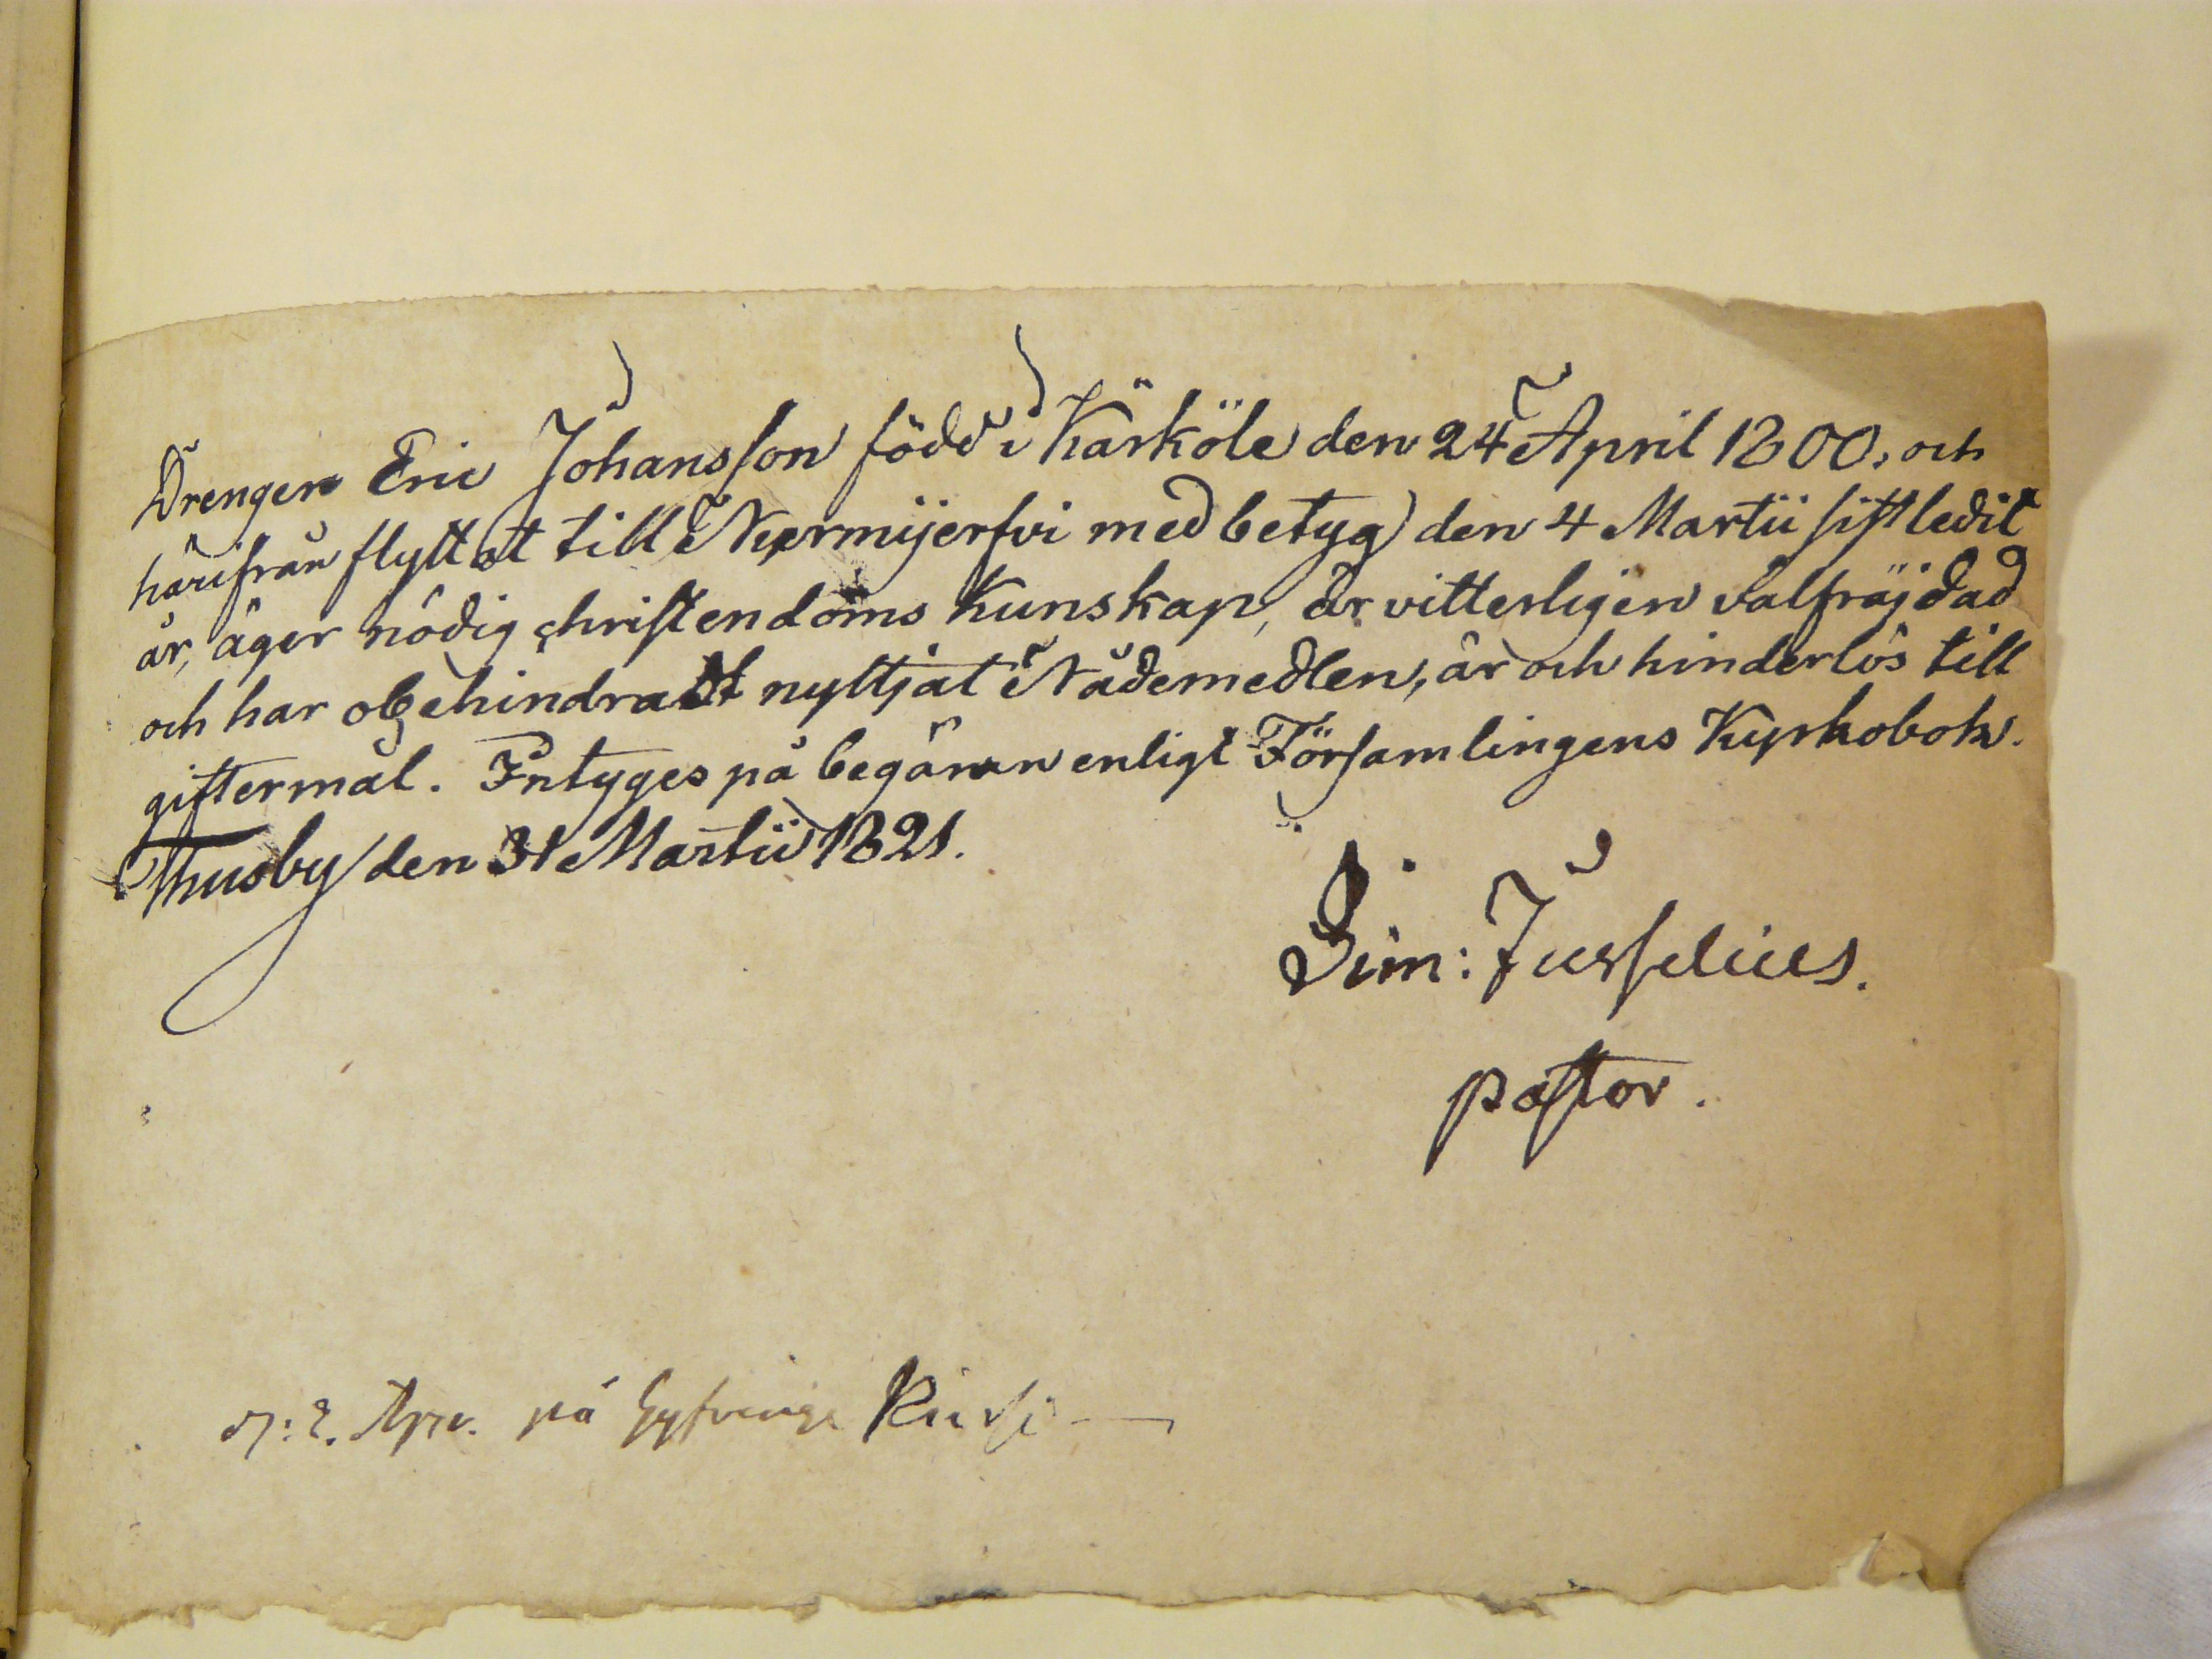 Drengen Eric Johansson född i Kärköle den 24 April 1800, och
härifrån flyttat till Nurmijerfvi med betyg den 4 Martii sistledit
år, äger nödig christendoms Kunskap, är vitterligen välfräjdad
och har obehindradt nyttjat Nådemedlen, är och hinderlös till
giftermål. Intyges på begäran enligt Församlingens Kyrkobok.
Thusby den 31 Martii 1821.
Sim: Jusselius.
pastor.
på